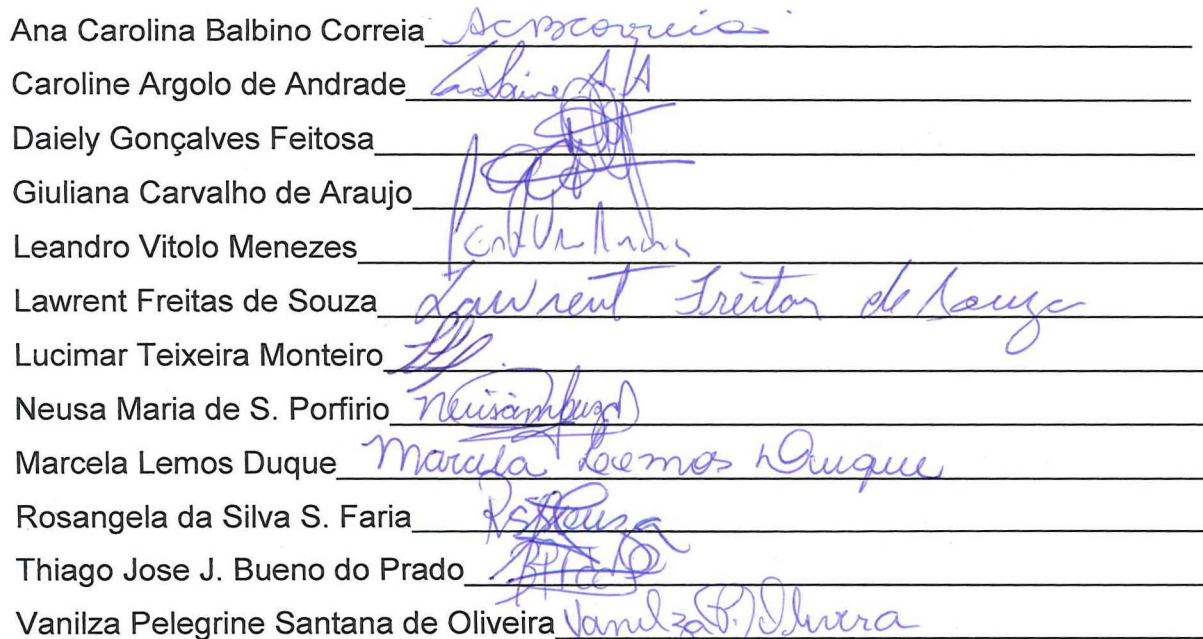 Ana Carolina Balbino Correia ACBCorreia
Caroline Argolo de Andrade A.A
Daiely Gonçalves Feitosa
Giuliana Carvalho de Araujo
Leandro Vitolo Menezes
Lawrent Freitas de Souza Lawrent Freitas de Souza
Lucimar Teixeira Monteiro
Neusa Maria de S. Porfirio
Marcela Lemos Duque Marcela Lemos Duque
Rosangela da Silva S. Faria
Thiago Jose J. Bueno do Prado
Vanilza Pelegrine Santana de Oliveira Vanilza P. Oliveira